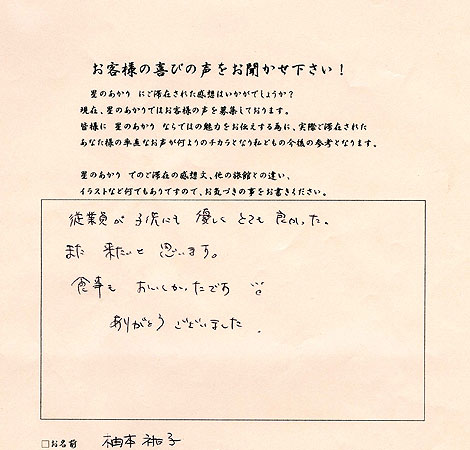 お客様の喜びの声をお聞かせ下さい！
星のあかり にご滞在された感想はいかがでしょうか？
現在、星のあかりではお客様の声を募集しております。
皆様に 星のあかり ならではの魅力をお伝えする為に、実際ご滞在された
あなた様の率直なお声が何よりのチカラとなり私どもの今後の参考となります。
星のあかり でのご滞在の感想文、他の旅館との違い、
イラストなど何でもありですので、お気づきの事をお書きください。
従業員が 子供にも 優しく とても 良かった。
また 来たいと 思います。
食事も おいしかったです
ありがとう ございました.
□お名前 柚本 祐子